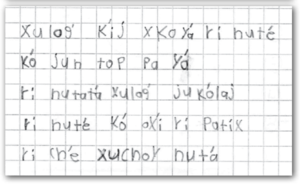 xulog' kíj xkoyá ri nuté
kó jun top pa yá
ri nutatá xulog' jukólaj
ri nuté kó oxi ri patix
ri ché xuchoy nutá